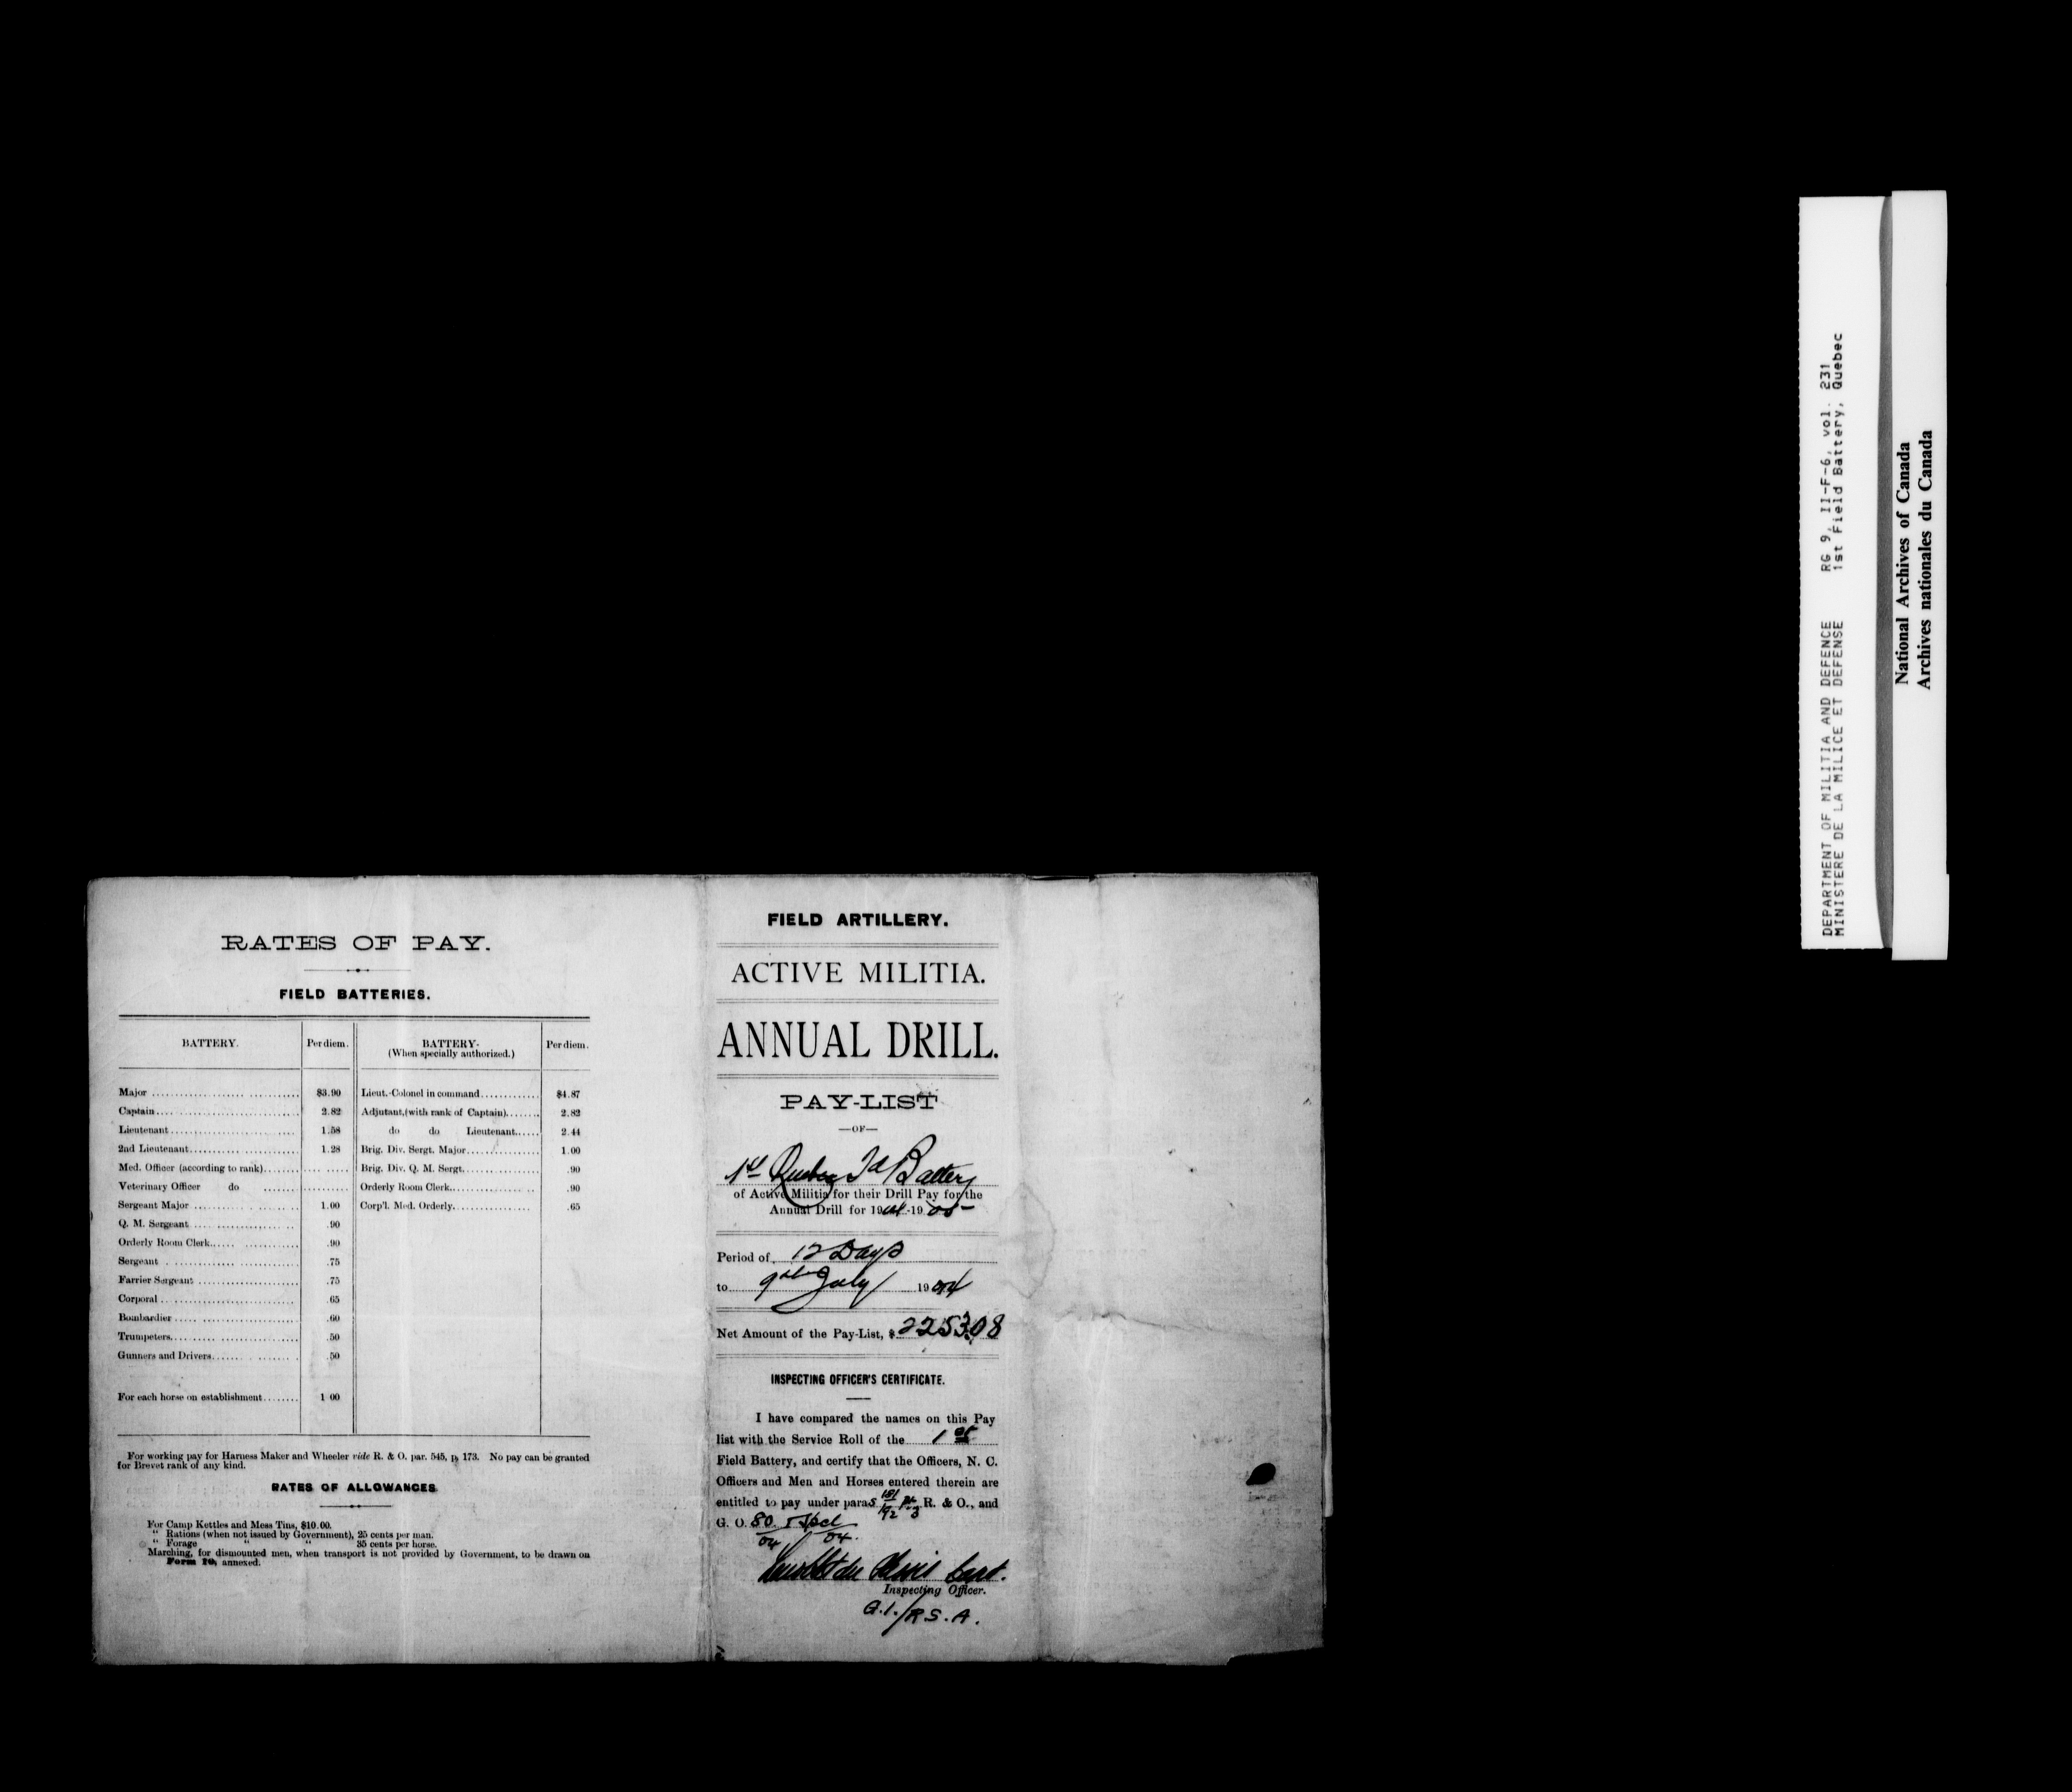 RATES OF PAY.
FIELD BATTERIES.
BATTERY. Per diem. BATTERY. Per diem.
(When specially authorized.)
Major $3.90 Lieut.-Colonel in command $4.87
Captain 2.82 Adjutant,(with rank of Captain) 2.82
Lieutenant 1.58 do do Lieutenant 2.44
2nd Lieutenant 1.28 Brig. Div. Sergt. Major 1.00
Med. Officer (according to rank) Brig. Div. Q. M. Sergt. .90
Veterinary Officer do Orderly Room Clerk .90
Sergeant Major 1.00 Corp'l. Med. Orderly .65
Q. M. Sergeant .90
Orderly Room Clerk .90
Sergeant .75
Farrier Sergeant .75
Corporal .65
Bombardier .60
Trumpeters .50
Gunners and Drivers .50
For each horse on establishment 1 00
For working pay for Harness Maker and Wheeler vide R. & O. par. 545, p. 173. No pay can be granted
for Brevet rank of any kind.
RATES OF ALLOWANCES.
For Camp Kettles and Mess Tins, $10.00.
" Rations (when not issued by Government), 25 cents per man.
" Forage " " 35 cents per horse.
Marching, for dismounted men, when transport is not provided by Government, to be drawn on
Form 10, annexed.
FIELD ARTILLERY.
ACTIVE MILITIA.
ANNUAL DRILL.
PAY-LIST
—OF—
1st Quebec Fd Battery
of Active Militia for their Drill Pay for the
Annual Drill for 1904-1905
Period of 12 Days
to 9th July 1904
Net Amount of the Pay-List, $2253.08
INSPECTING OFFICER'S CERTIFICATE.
I have compared the names on this Pay
list with the Service Roll of the 1st
Field Battery, and certify that the Officers, N. C.
Officers and Men and Horses entered therein are
entitled to pay under paras R. & O., and
G. O. 80 04 04.
Capt.
Inspecting Officer.
G.I./R.S.A.
DEPARTMENT OF MILITIA AND DEFENCE RG 9, II-F-6, vol. 231
MINISTERE DE LA MILICE ET DEFENSE 1st Field Battery, Quebec
National Archives of Canada
Archives nationales du Canada